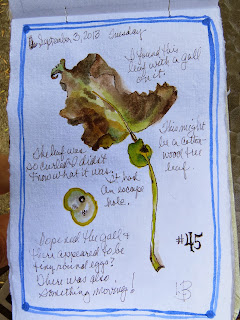 September 3, 2013 Tuesday
I found this
leaf with a gall
on it.
This might
be a cotton-
wood tree
leaf.
The leaf was
so curled I didn't
know what it was.
It had
an escape
hole.
I opened the gall &
there appeared to be
tiny round eggs?
There was also
something moving!
#45